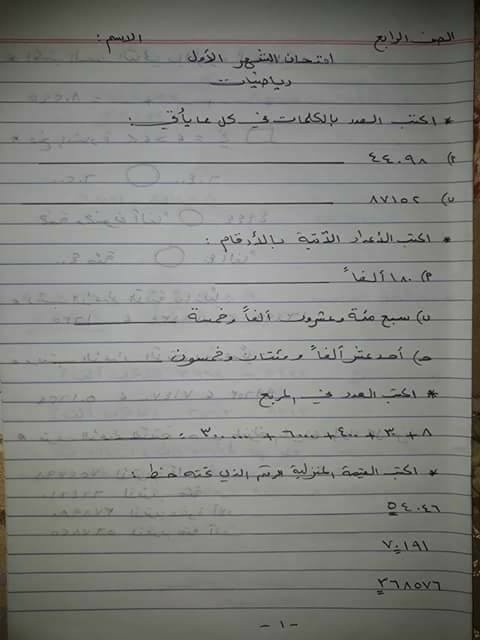 الصف الرابع الاسم :
امتحان الشهر الأول
رياضيات
* اكتب العدد بالكلمات في كل ما يأتي :
أ) ٤٤٠٩٨
ب) ٨٧١٥٢
* اكتب الأعداد الآتية بالأرقام :
أ) ١٨٠ ألفاً
ب) سبع مئة وعشرون ألفاً وخمسة
ج) أحد عشر ألفاً ومئتان وخمسون
* اكتب العدد في المربع
٨ + ٣٠ + ٤٠٠ + ٦٠٠٠ + ٣٠٠٠٠٠ =
* اكتب القيمة المنزلية للرقم الذي تحته خط :
٥٤٠٤٦
٧٠١٩١
٣٦٨٥٧٦
- ١ -